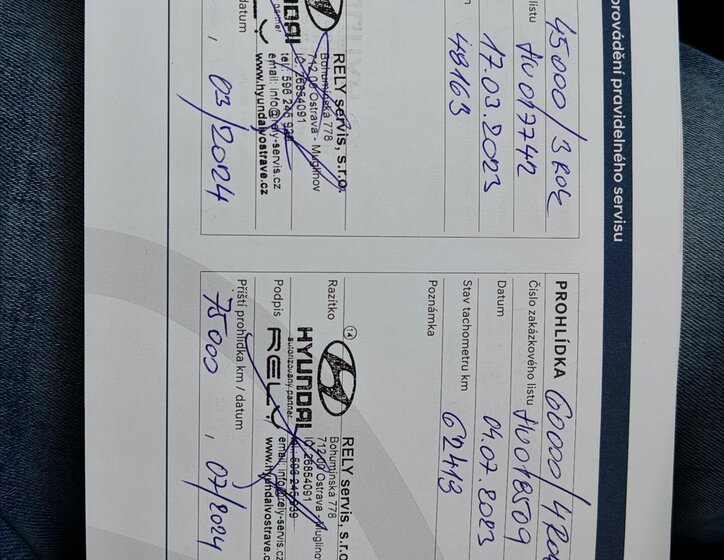 provádění pravidelného servisu
45000/3 ROK
listu HV017742
17.03.2023
48163
RELY servis, s.r.o.
Bohumínská 778
712 00 Ostrava - Muglinov
IČ: 26854091
email: info@rely-servis.cz
www.hyundaivostrave.cz
datum
, 03/2024
PROHLÍDKA 60000/4 ROK
Číslo zakázkového listu HV018509
Datum 04.07.2023
Stav tachometru km 62413
Poznámka
Razítko
14
HYUNDAI
autorizovaný partner
RELY
RELY servis, s.r.o.
Bohumínská 778
712 00 Ostrava - Muglinov
IČ: 26854091
www.hyundaivostrave.cz
Podpis
Příští prohlídka km / datum
75000 , 07/2024